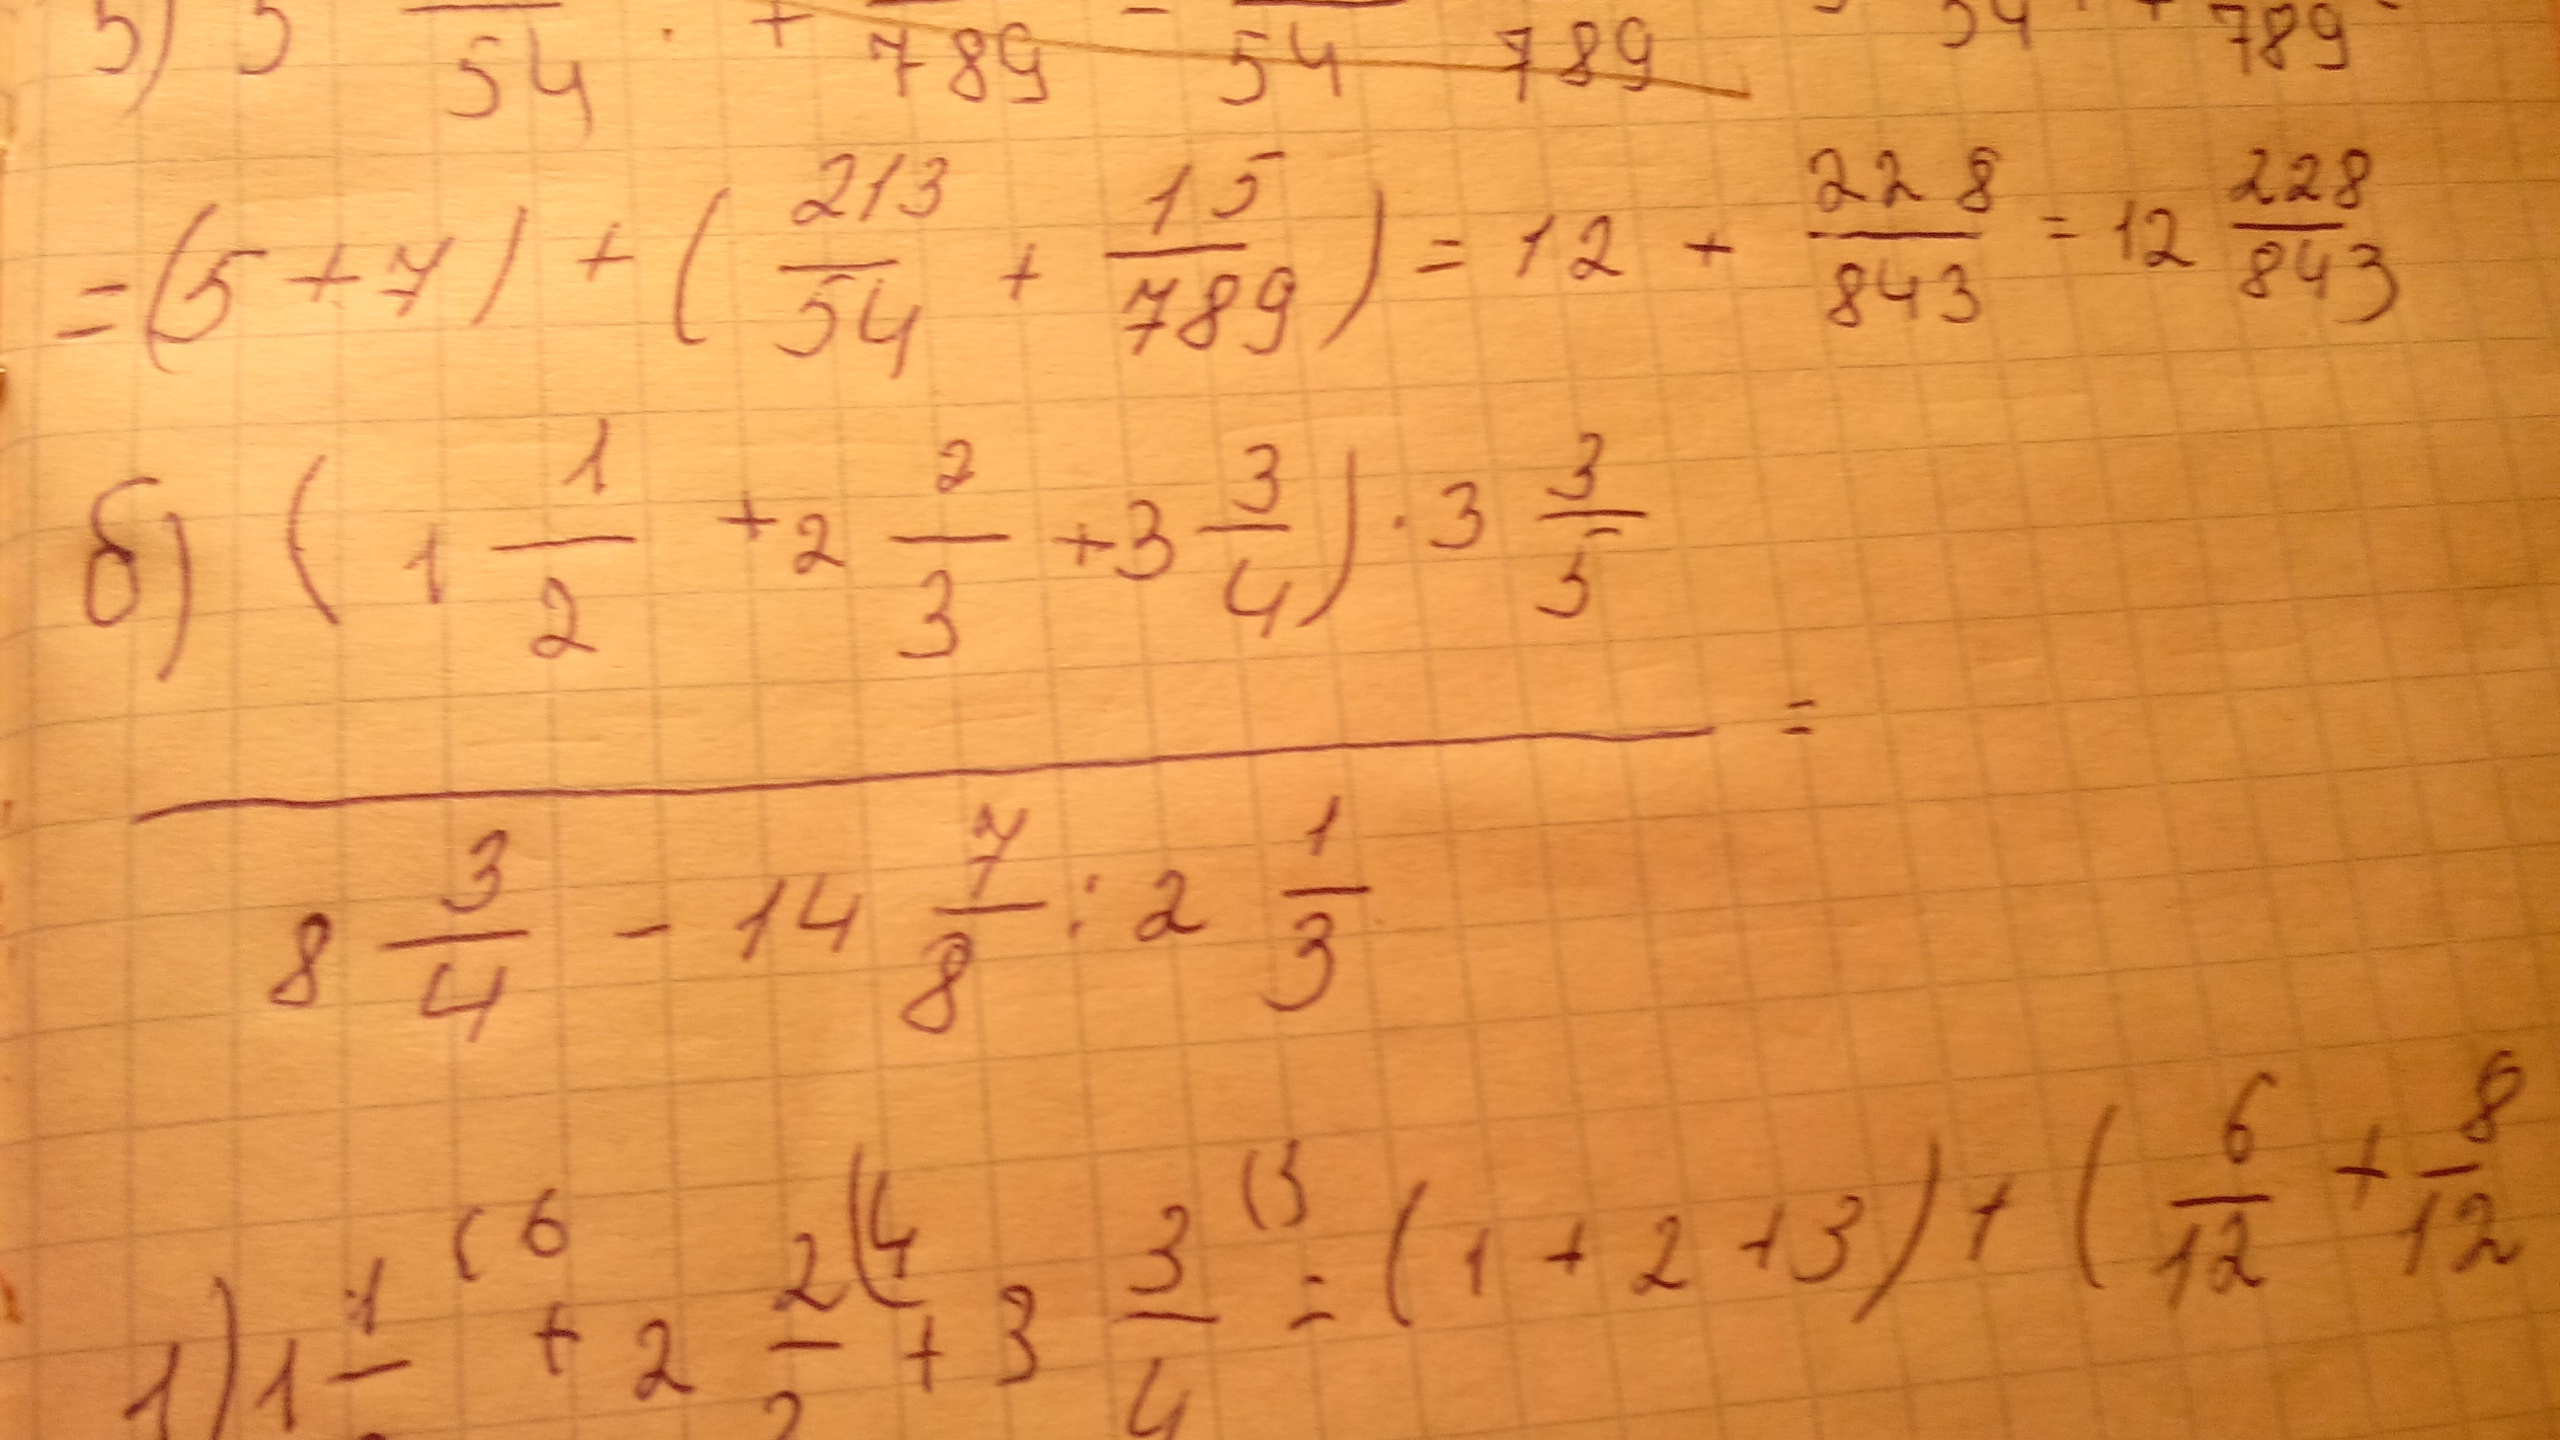 5) 5 /54 · + /789 = /54 /789 /54 + /789
= (5 + 7) + (213/54 + 15/789) = 12 + 228/843 = 12 228/843
б) (1 1/2 + 2 2/3 + 3 3/4) · 3 3/5
=
8 3/4 - 14 7/8 : 2 1/3
1) 1 1/ (6 + 2 2/ (4 + 3 3/4 (3 = (1 + 2 + 3) + (6/12 + 8/12